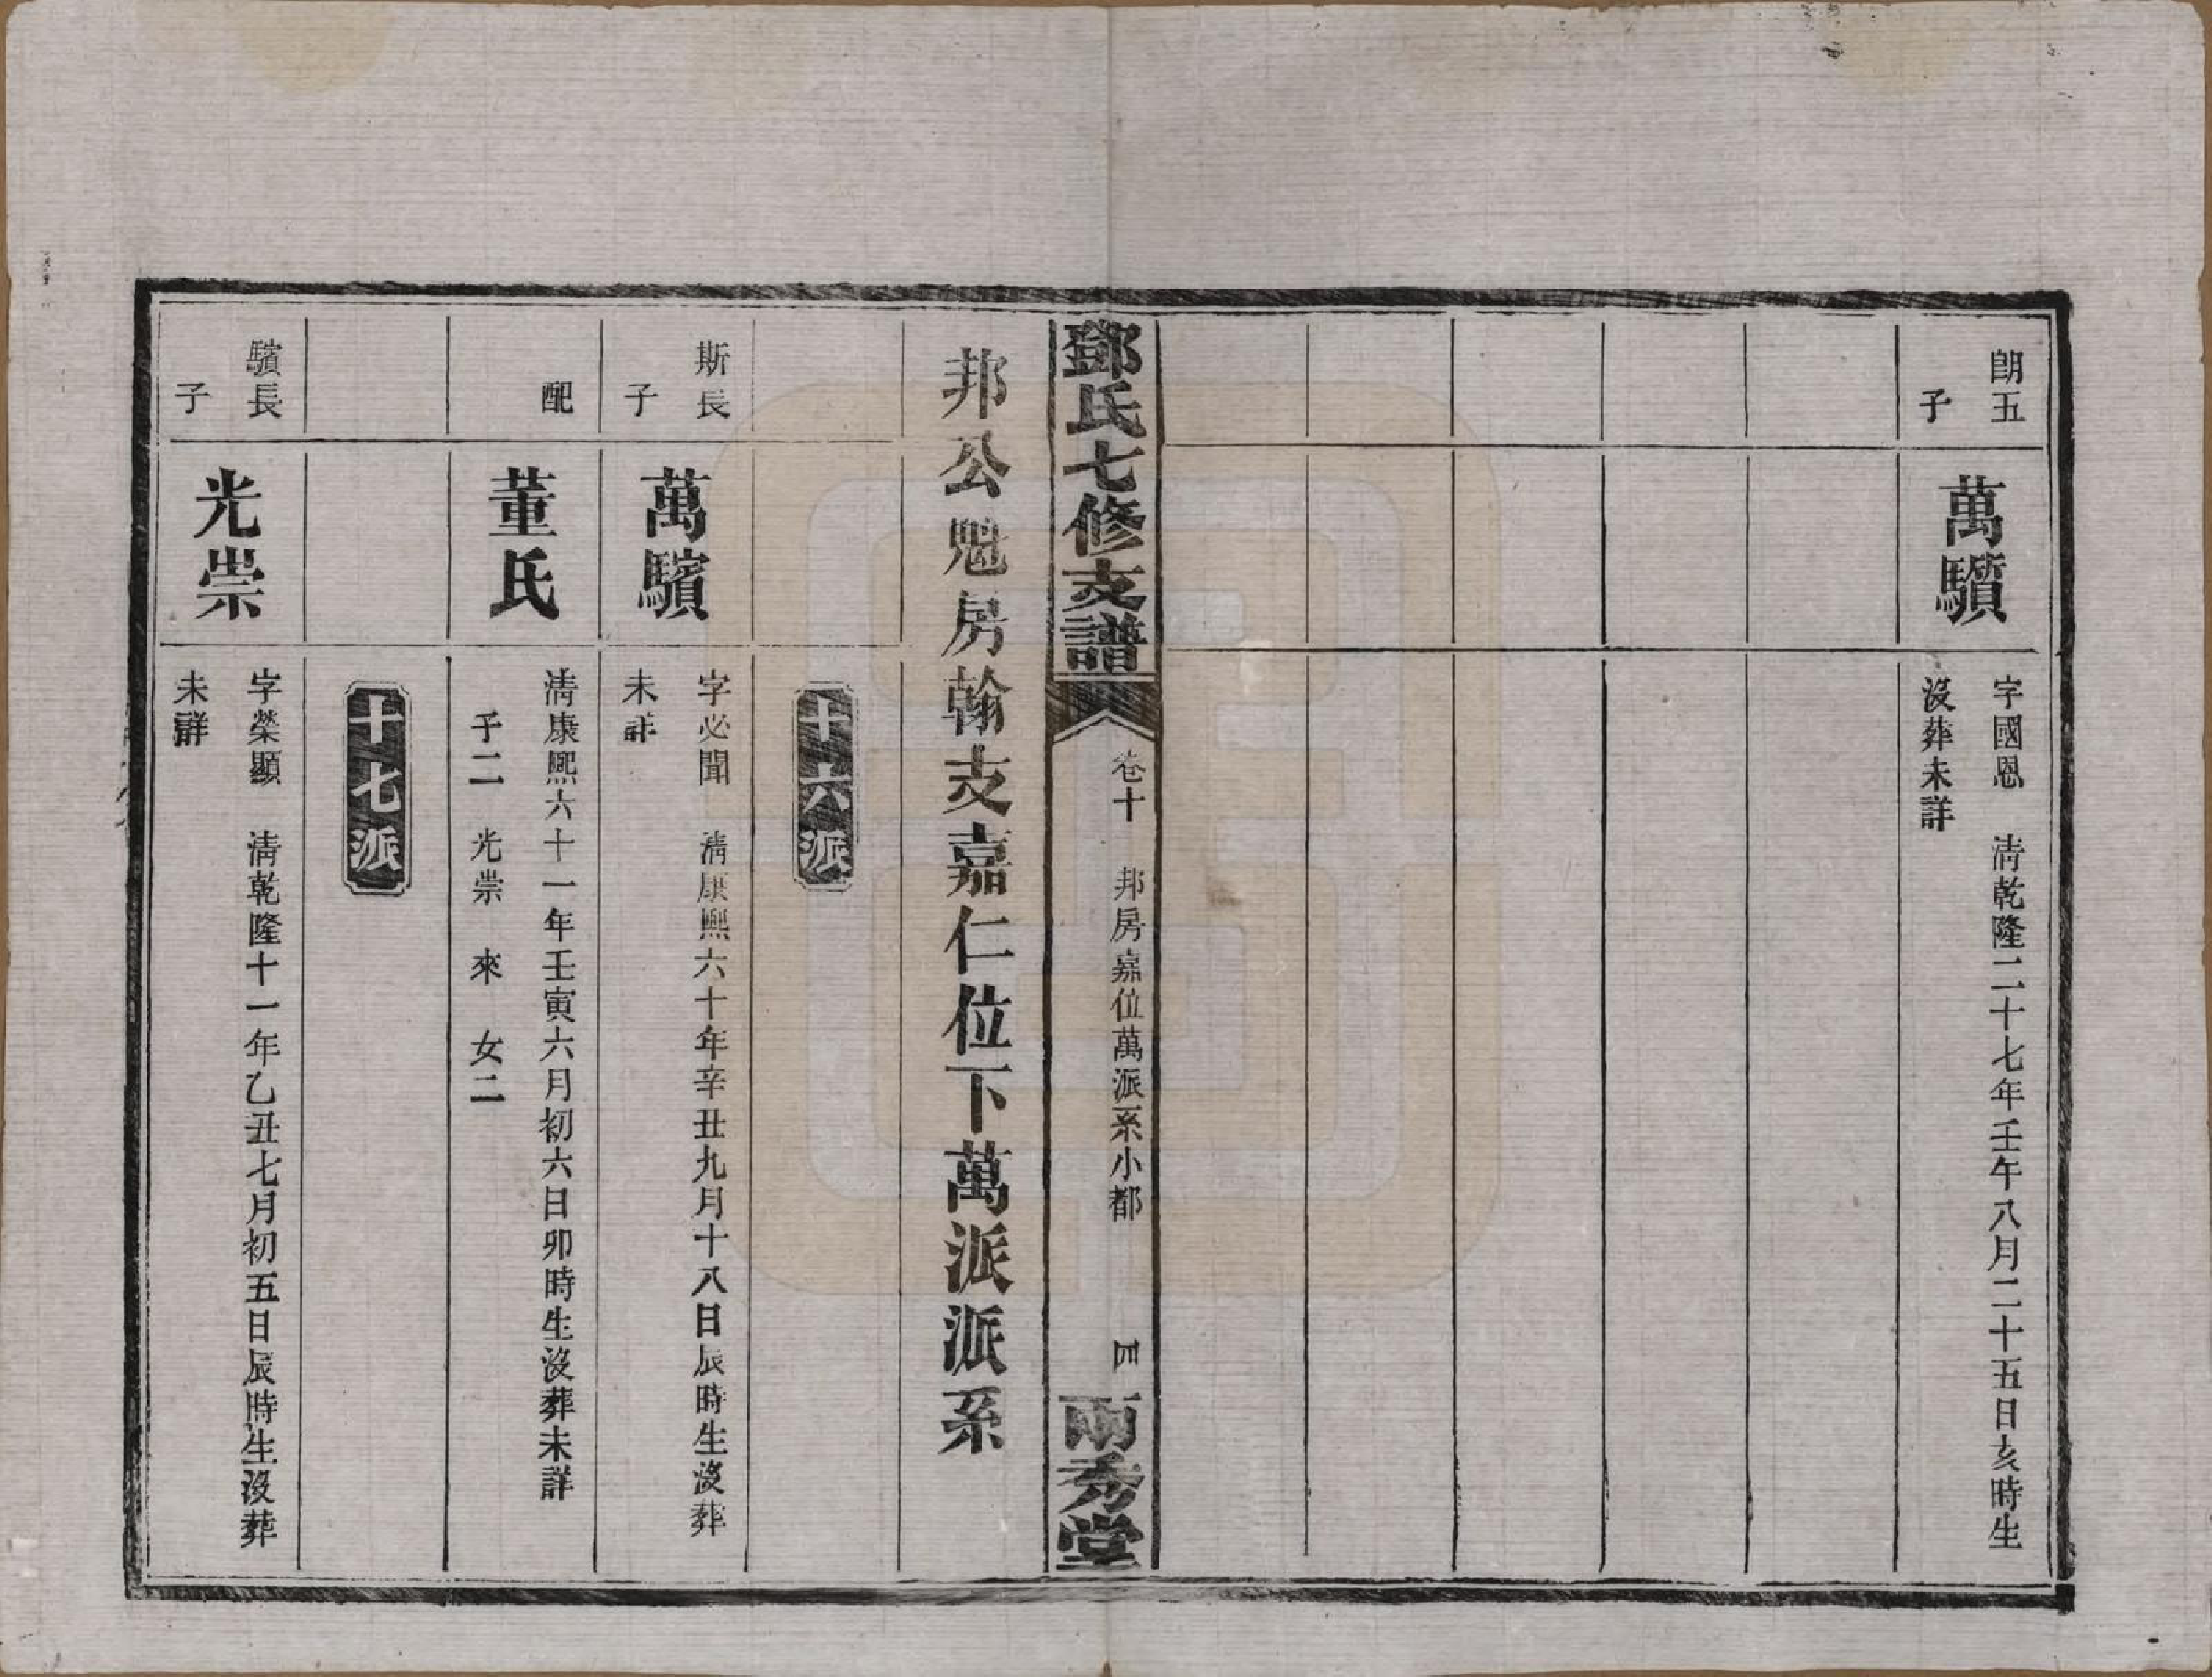 朗五
子
萬驞
字國恩　清乾隆二十七年壬午八月二十五日亥時生
沒葬未詳
鄧氏七修支譜
卷十　邦房嘉位萬派系小都
四
兩秀堂
邦公魁房翰支嘉仁位下萬派派系
十六派
斯長
子
萬驞
字必聞　清康熙六十年辛丑九月十八日辰時生沒葬
未詳
配
董氏
清康熙六十一年壬寅六月初六日卯時生沒葬未詳
子二　光崇　來　女二
十七派
驞長
子
光崇
字榮顯　清乾隆十一年乙丑七月初五日辰時生沒葬
未詳